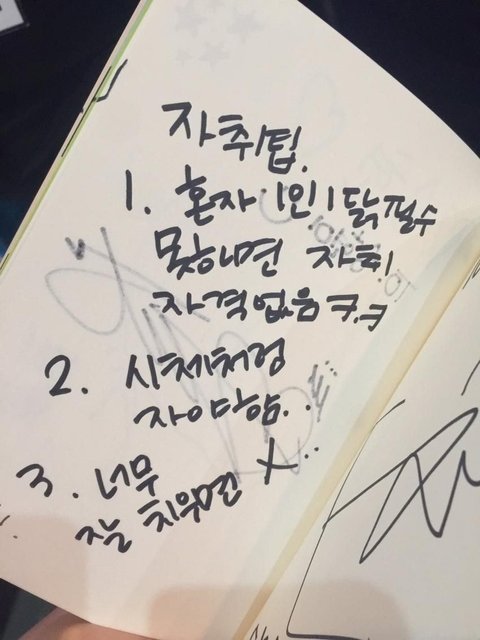 자취팁.
1. 혼자 1인1닭필수
못하면 자취
자격없음 ㅋ.ㅋ
2. 시체처럼
자야함..
3. 너무
잘 치우면 X..